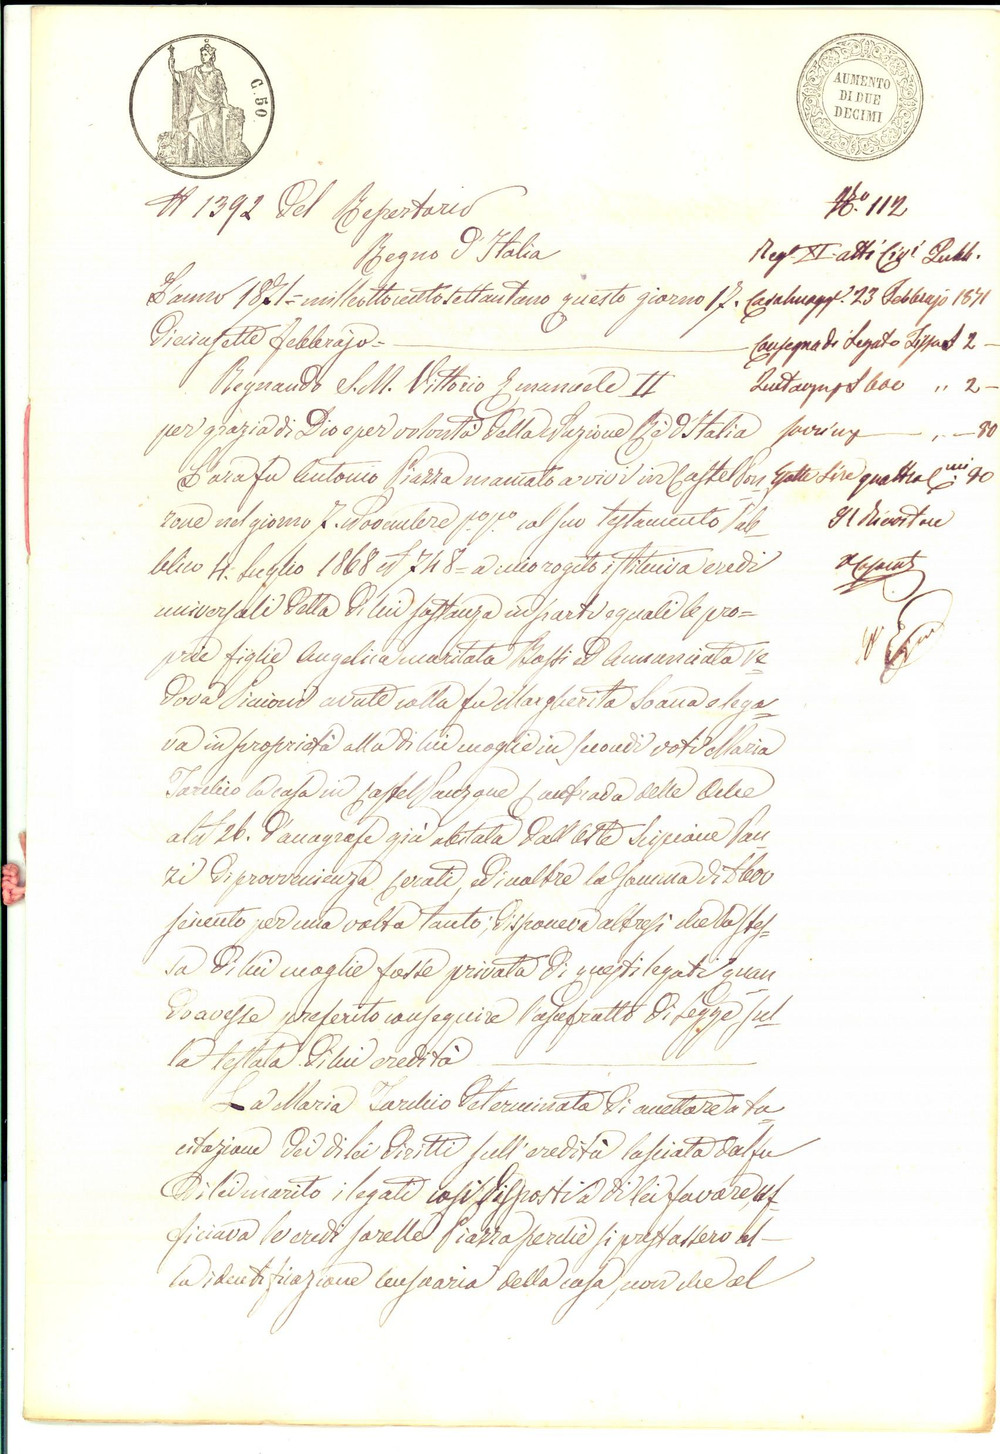 C. 50
AUMENTO
DI DUE
DECIMI
N 1392 del Repertorio
Regno d'Italia
L'anno 1871 = milleottocentosettantuno questo giorno 17.
diciassette Febbrajo =
Regnando S. M. Vittorio Emanuele II
per grazia di Dio e per volontà della Nazione Re d'Italia
Lora fu Antonio Piazza mancato a vivi in Castel Pon
zone nel giorno 7. Novembre p.º p.º col suo testamento Pub-
blico 4. Luglio 1868 N 748 = a mio rogito istituiva eredi
universali della di lui sostanza in parti eguali le pro=
prie figlie Angelica maritata Rossi ed Annunciata Ve
dova avute colla fu Margherita Soana e lega
va in proprietà alla di lui moglie in secondi voti Maria
Tarchio la casa in Castel Ponzone Contrada delle
al N 26. d'anagrafe già abitata dall' Scipione Pan
zi di provvenienza Cerati, ed inoltre la somma di £ 600
seicento per una volta tanto; disponeva altresì che la stes
sa di lui moglie fosse privata di questi legati quan
do avesse preferito conseguire l'usufrutto di Legge sul
la testata di lui eredità
La Maria Tarchio determinata di accettare a ta
citazione dei di lei diritti sull'eredità lasciata dal fu
di lei marito i legati così disposti a di lei favore, uf
ficiava le eredi sorelle Piazza perchè si prestassero al-
la identificazione censuaria della casa, non che al
N.º 112
Reg.º XI atti Civ.i Pubb.
Casalmagg.e 23 Febbrajo 1871
Consegna di Legato Fissa £ 2 -
£ 600 " 2 -
sovrimp " - 80
Esatte Lire quattro C.mi 80
Il Ricevitore